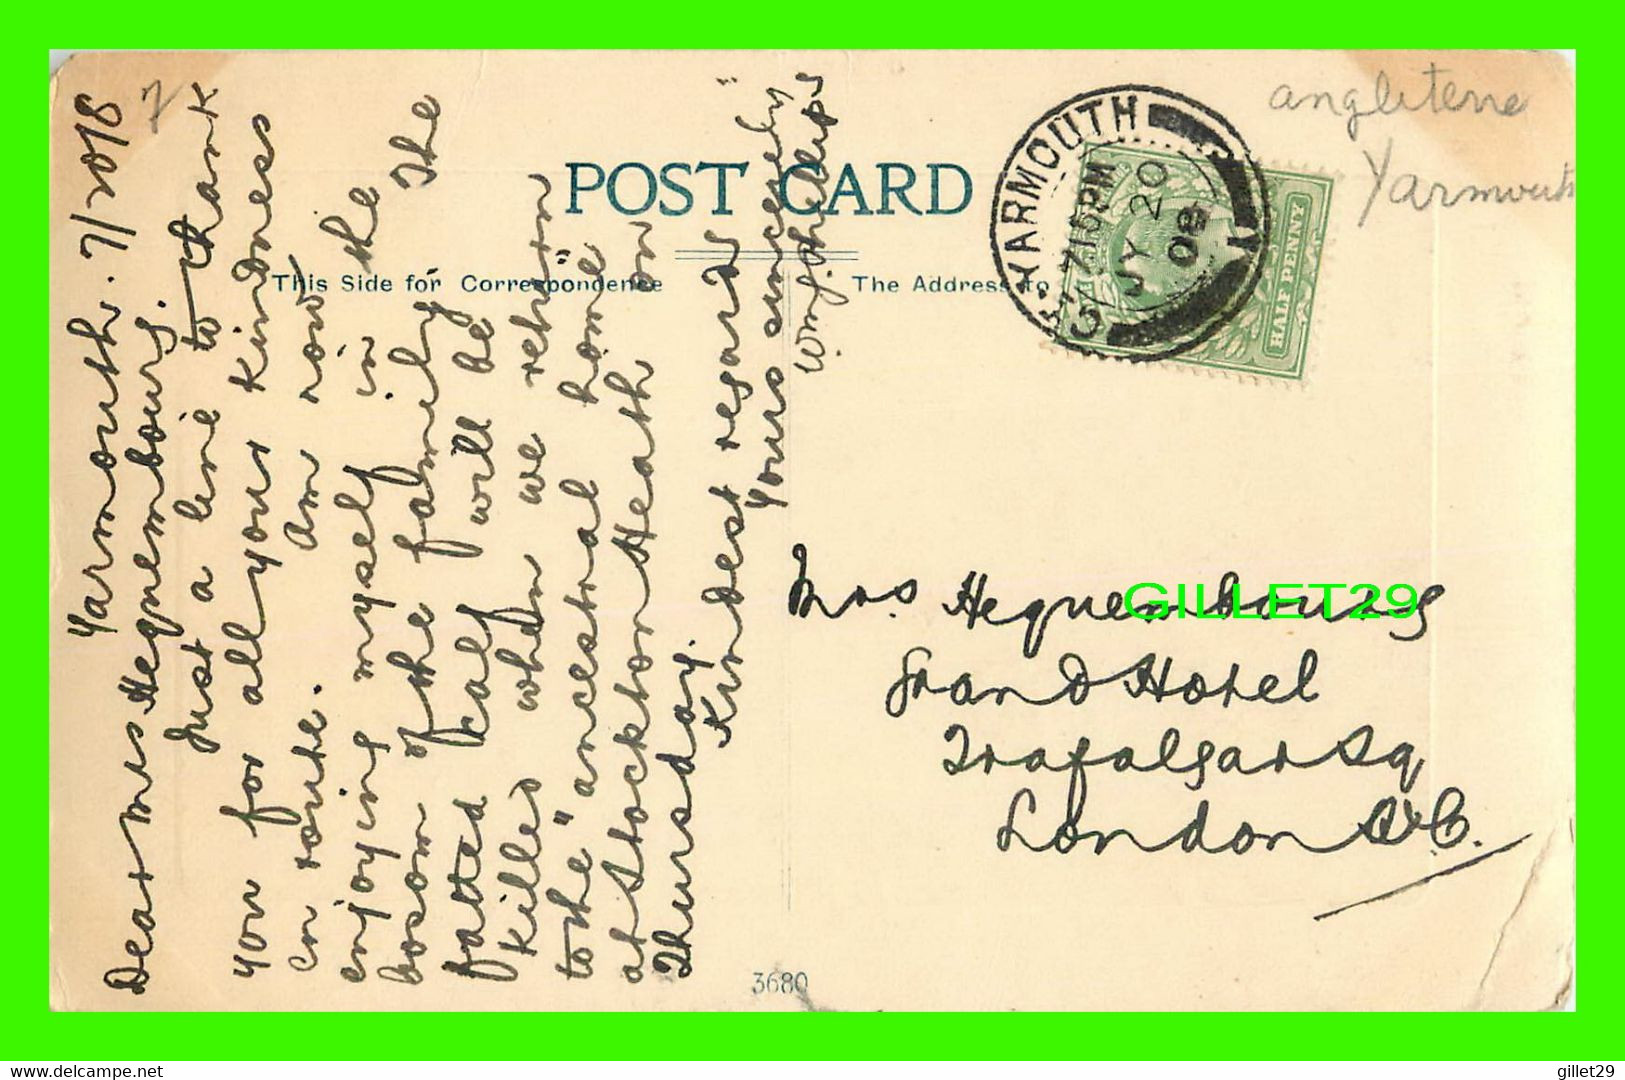 POST CARD
This Side for Correspondence
The Address to
Yarmouth. 7/20/8
Dear Mrs Hequembourg.
Just a line to thank
you for all your kindness
en route. Am now
enjoying myself in the
bosom of the family. The
fatted calf will be
killed when we return
to the "ancestral home"
at Stockton Heath on
Thursday.
Kindest regards
Yours sincerely
Wm J. Phillips
GT. YARMOUTH
7 15 PM
JY 20
08
HALF PENNY
Angleterre
Yarmouth
7
Mrs Hequembourg
Grand Hotel
Trafalgar Sq
London W.C.
3680
GILLET29
delcampe.net
gillet29